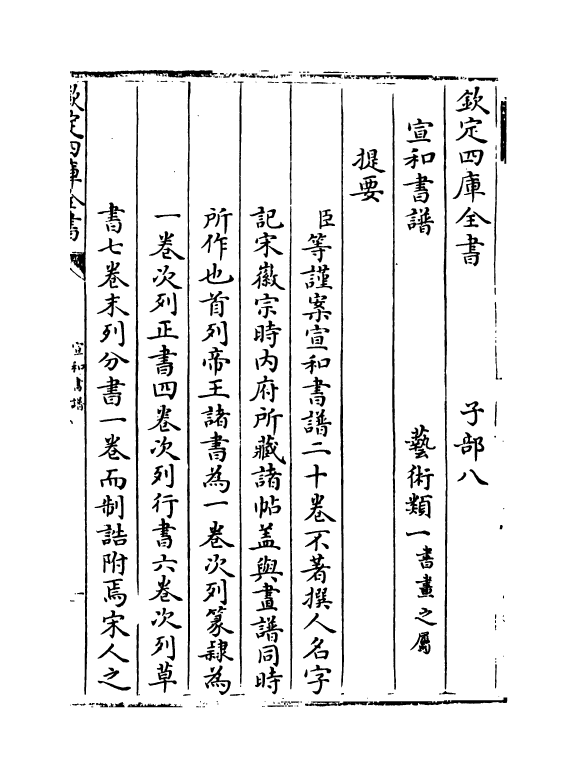 欽定四庫全書 子部八
宣和書譜 藝術類一書畫之屬
提要
臣等謹案宣和書譜二十卷不著撰人名字
記宋徽宗時内府所藏諸帖盖與畫譜同時
所作也首列帝王諸書為一卷次列篆隸為
一卷次列正書四卷次列行書六卷次列草
書七卷末列分書一卷而制誥附焉宋人之
欽定四庫全書
宣和書譜